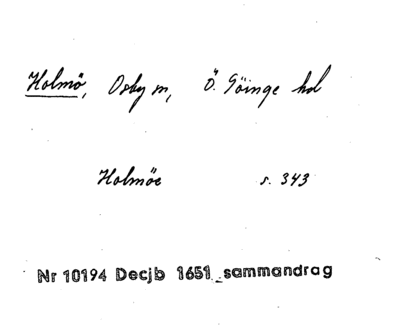 Holmö, Osby sn, Ö. Göinge hd
Holmöe s. 343
Nr 10194 Decjb 1651 sammandrag